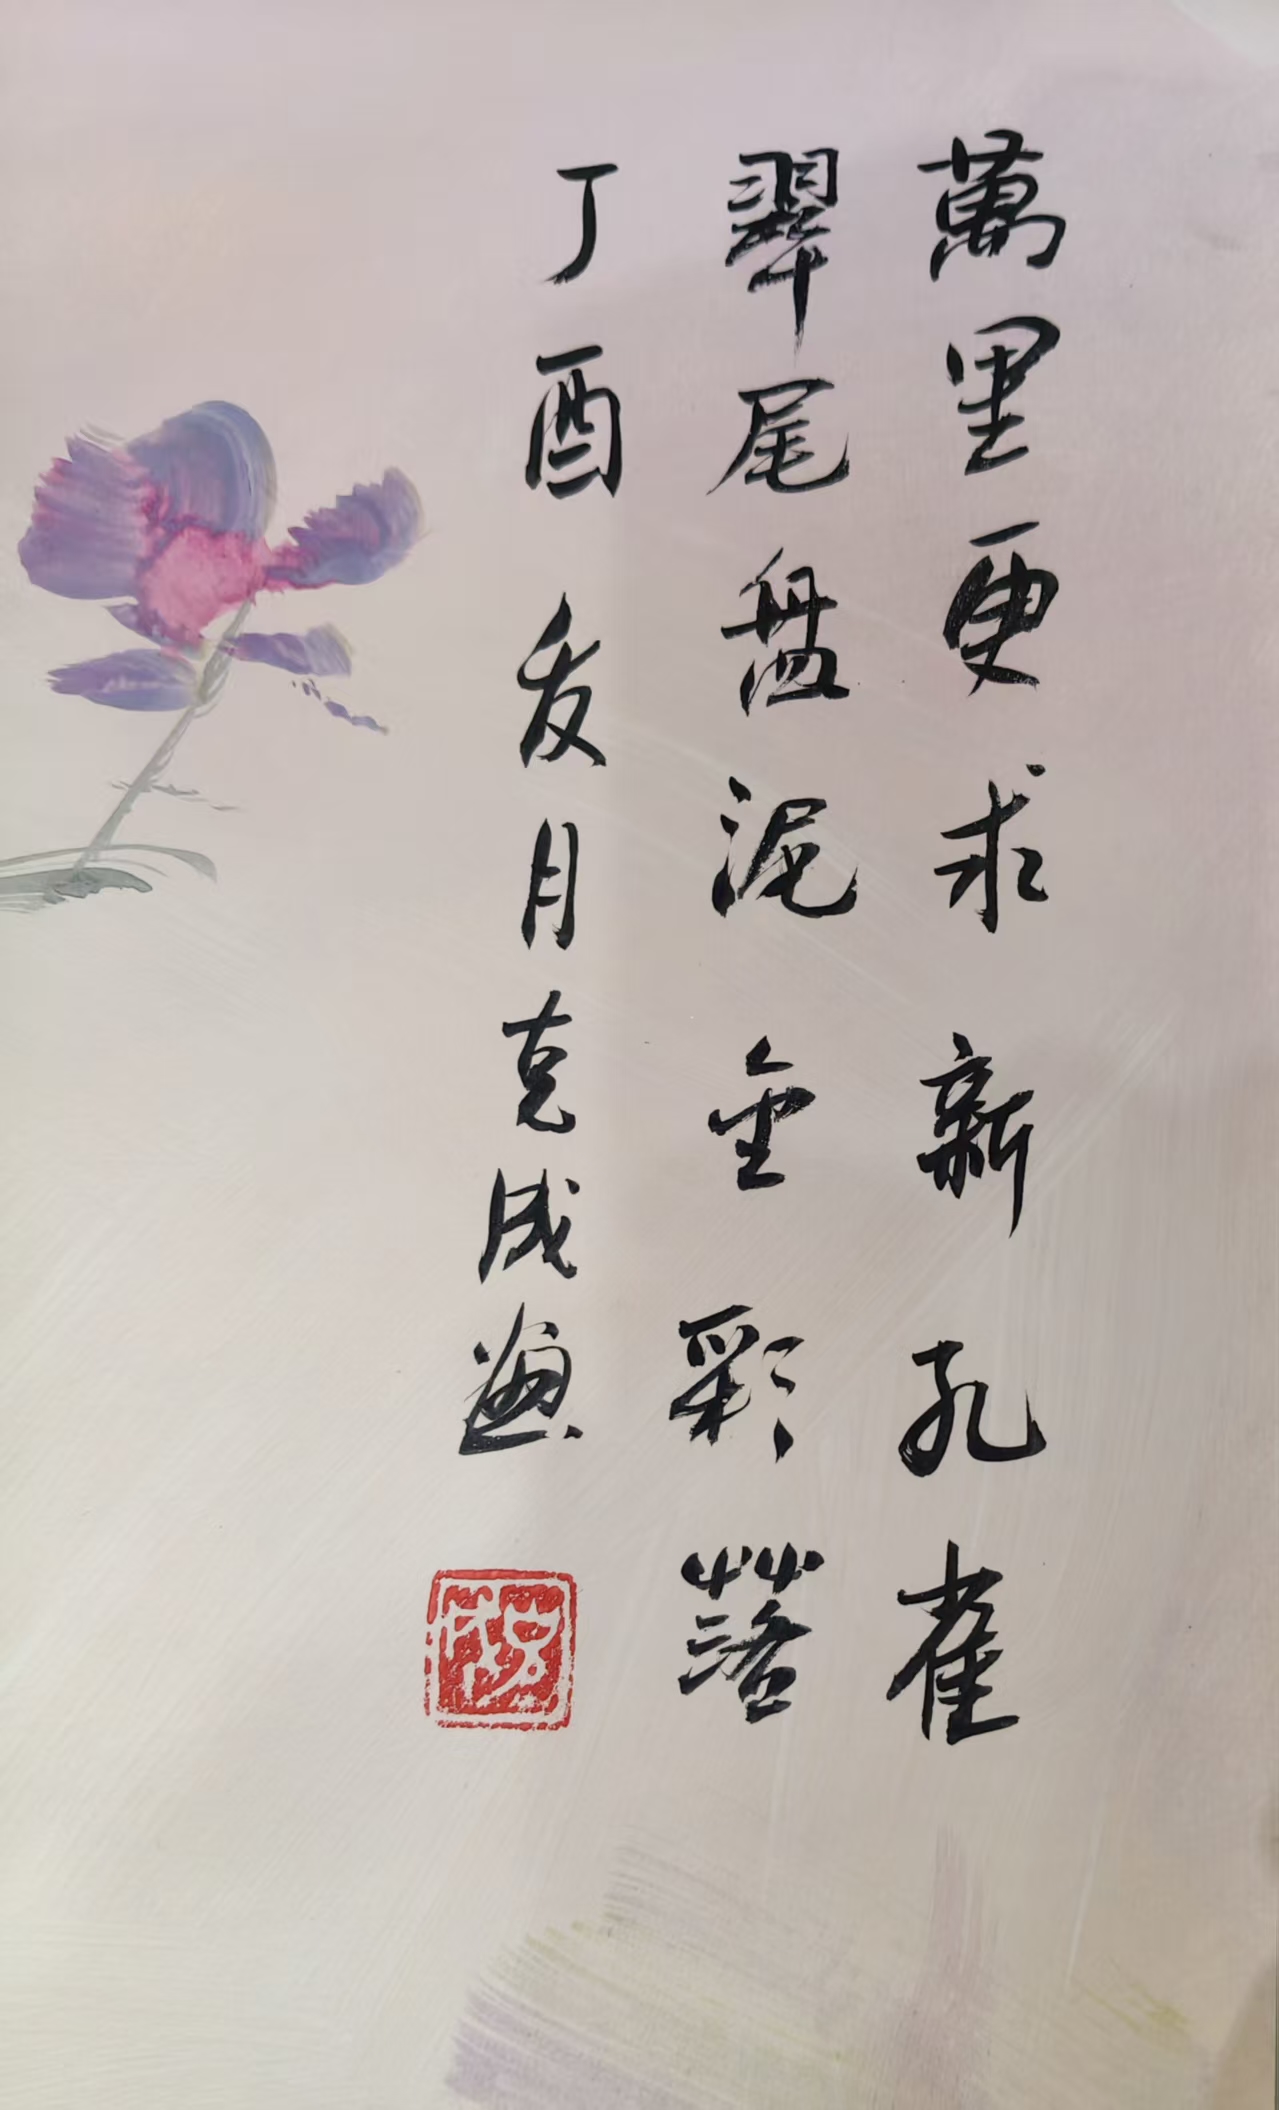 萬里更求新孔雀
翠尾盤泥金彩落
丁酉夏月克成畫